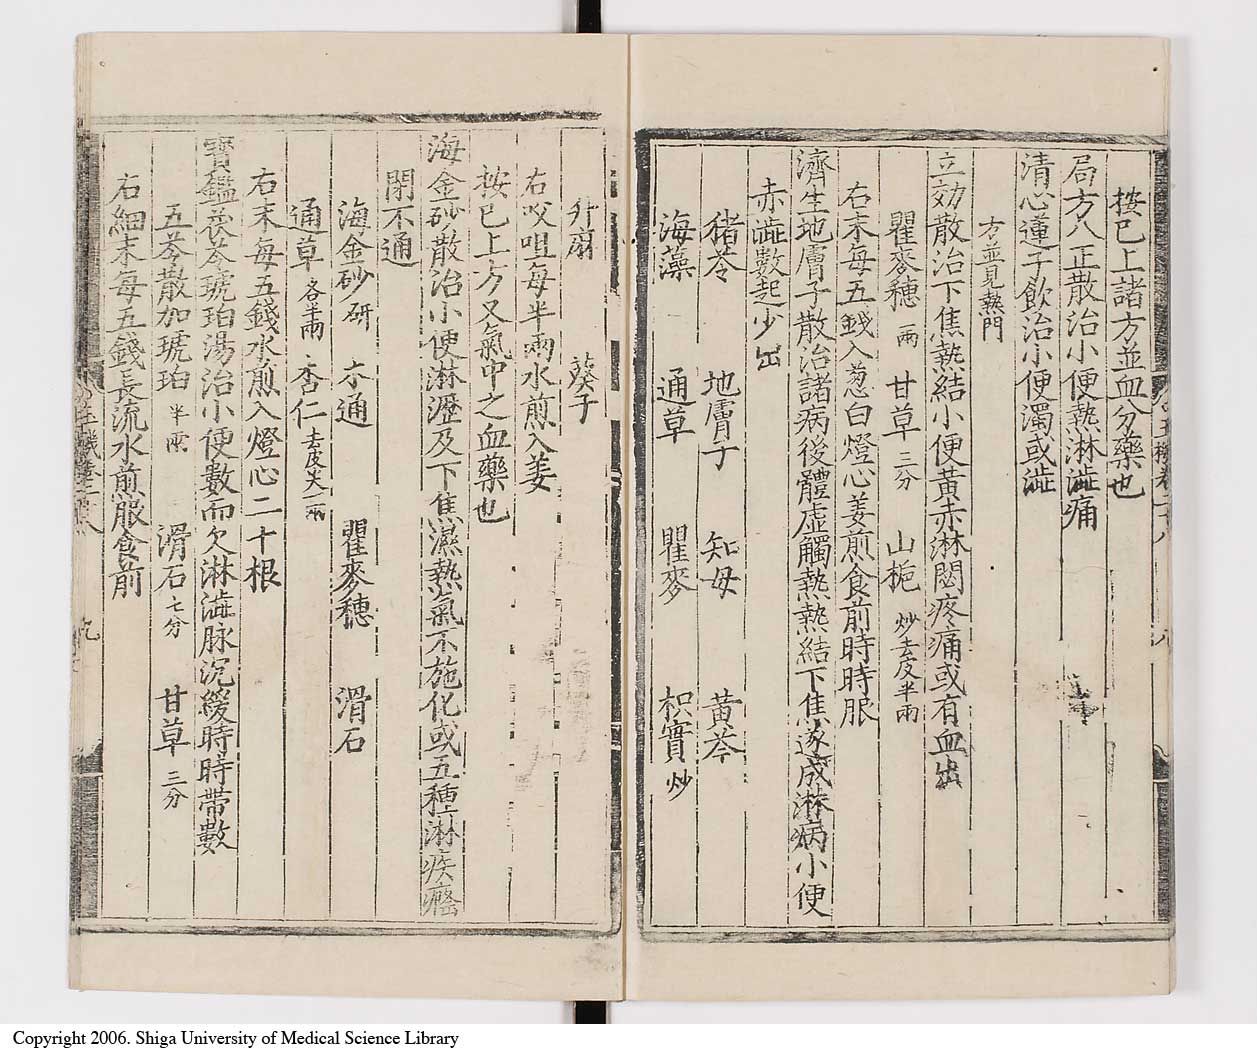 按已上諸方並血分藥也
局方八正散治小便熱淋澁痛
清心蓮子飲治小便濁或澁
方並見熱門
立効散治下焦熱結小便黃赤淋閟疼痛或有血出
瞿麥穗 一兩 甘草 三分 山梔 炒去皮半兩
右末每五錢入葱白燈心姜煎食前時時服
濟生地膚子散治諸病後體虛觸熱熱結下焦遂成淋病小便
赤澁數起少出
猪苓 地膚子 知母 黃芩
海藻 通草 瞿麥 枳實 炒
升麻 葵子
右㕮咀每半兩水煎入姜
按已上方又氣中之血藥也
海金砂散治小便淋瀝及下焦濕熱氣不施化或五種淋疾癃
閉不通
海金砂 研 木通 瞿麥穗 滑石
通草 各半兩 杏仁 去皮尖一兩
右末每五錢水煎入燈心二十根
寶鑑茯苓琥珀湯治小便數而欠淋澁脉沉緩時時帶數
五苓散加琥珀 半兩 滑石 七分 甘草 三分
右細末每五錢長流水煎服食前
九
Copyright 2006. Shiga University of Medical Science Library